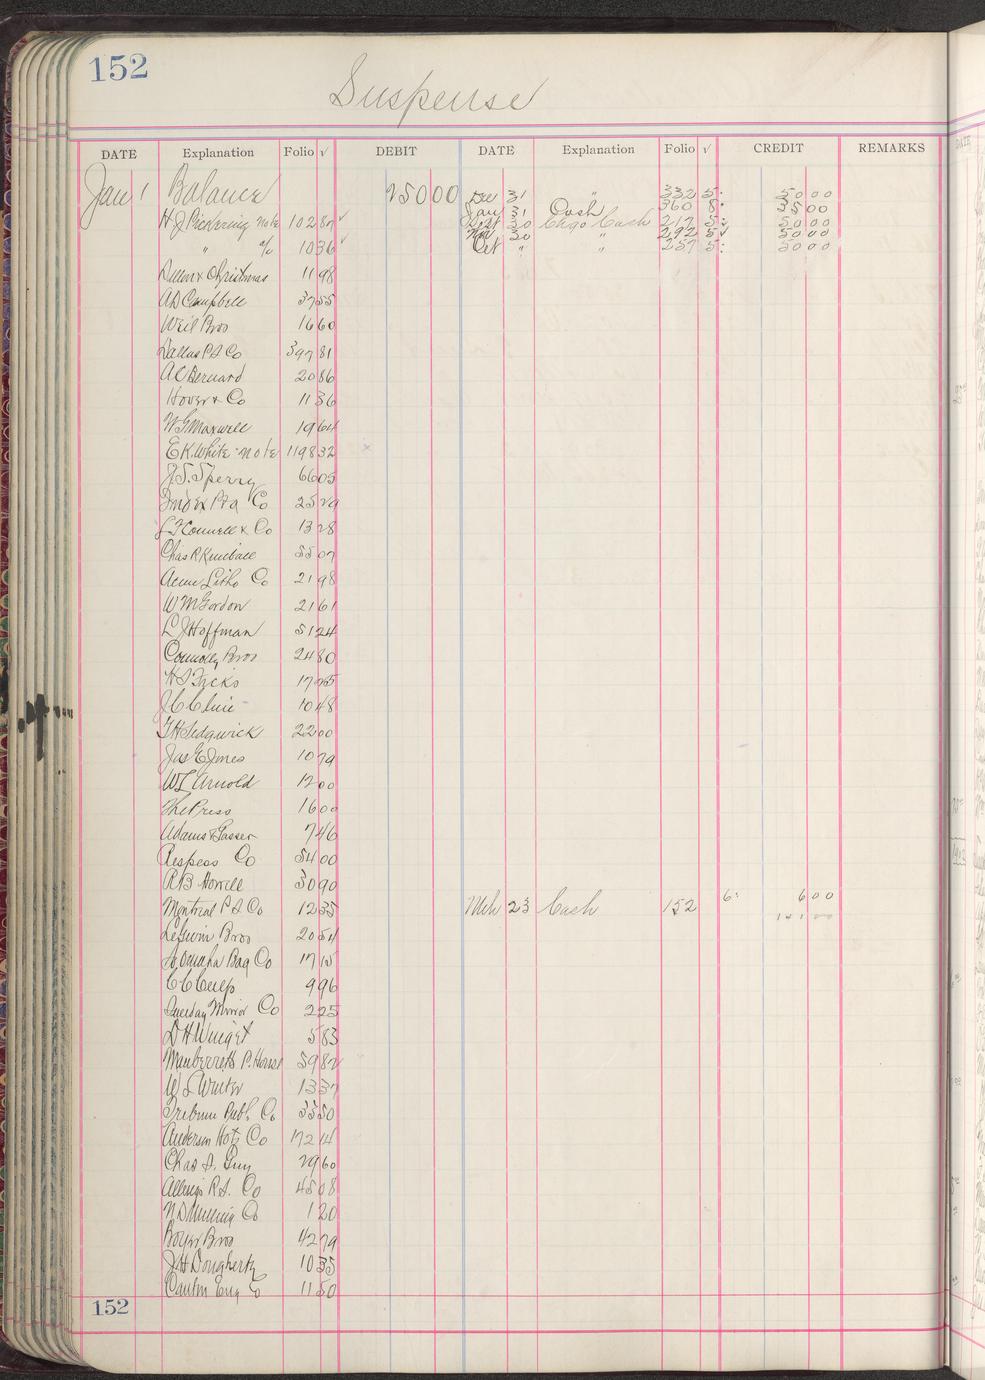 152
Suspense
DATE Explanation Folio √ DEBIT DATE Explanation Folio √ CREDIT REMARKS
Jan 1 Balance 25000 Dec 31 " 332 5 5000
Jan 31 Cash 360 8 3500
H J Pickering note 10287 √ Sept 30 Chgo Cash 217 5 5000
Nov 30 " 292 5 5000
" a/c 1036 √ Oct " " 257 5 5000
Dillon & Christmas 1198
A D Campbell 3755
Weil Bros 1660
Dallas P S Co 39781
A C Bernard 2086
Hover & Co 1136
W G Maxwell 1964
E K White note 119832
J. S. Sperry 6605
Index Ptg Co 2529
J F Connell & Co 1328
Chas R Kimball 5507
Acme Litho Co 2198
W M Gordon 2161
L J Hoffman 5124
Connolly Bros 2480
H S Fricks
J C Cluie 1048
T H Sedgwick 2200
Jas E Jones 1079
W L Arnold 1200
The Press 1600
Adams & Gasser 746
Respess Co 5400
R B Howell 3090
Montreal P S Co 1235 Mch 23 Cash 152 6 600
LeGwin Bros 2054
So Omaha Bag Co 1715
C C Culp 996
Sunday Mirror Co 225
D H Winget 583
P. House 5982
W S Winter 1337
Tribune Publ. Co 3350
Anderson Hotz Co 17214
Chas S. Guy 2960
R. S. Co 4508
Co 120
Boyer Bros 4279
J H Dougherty 1035
Canton Eng Co 1150
152